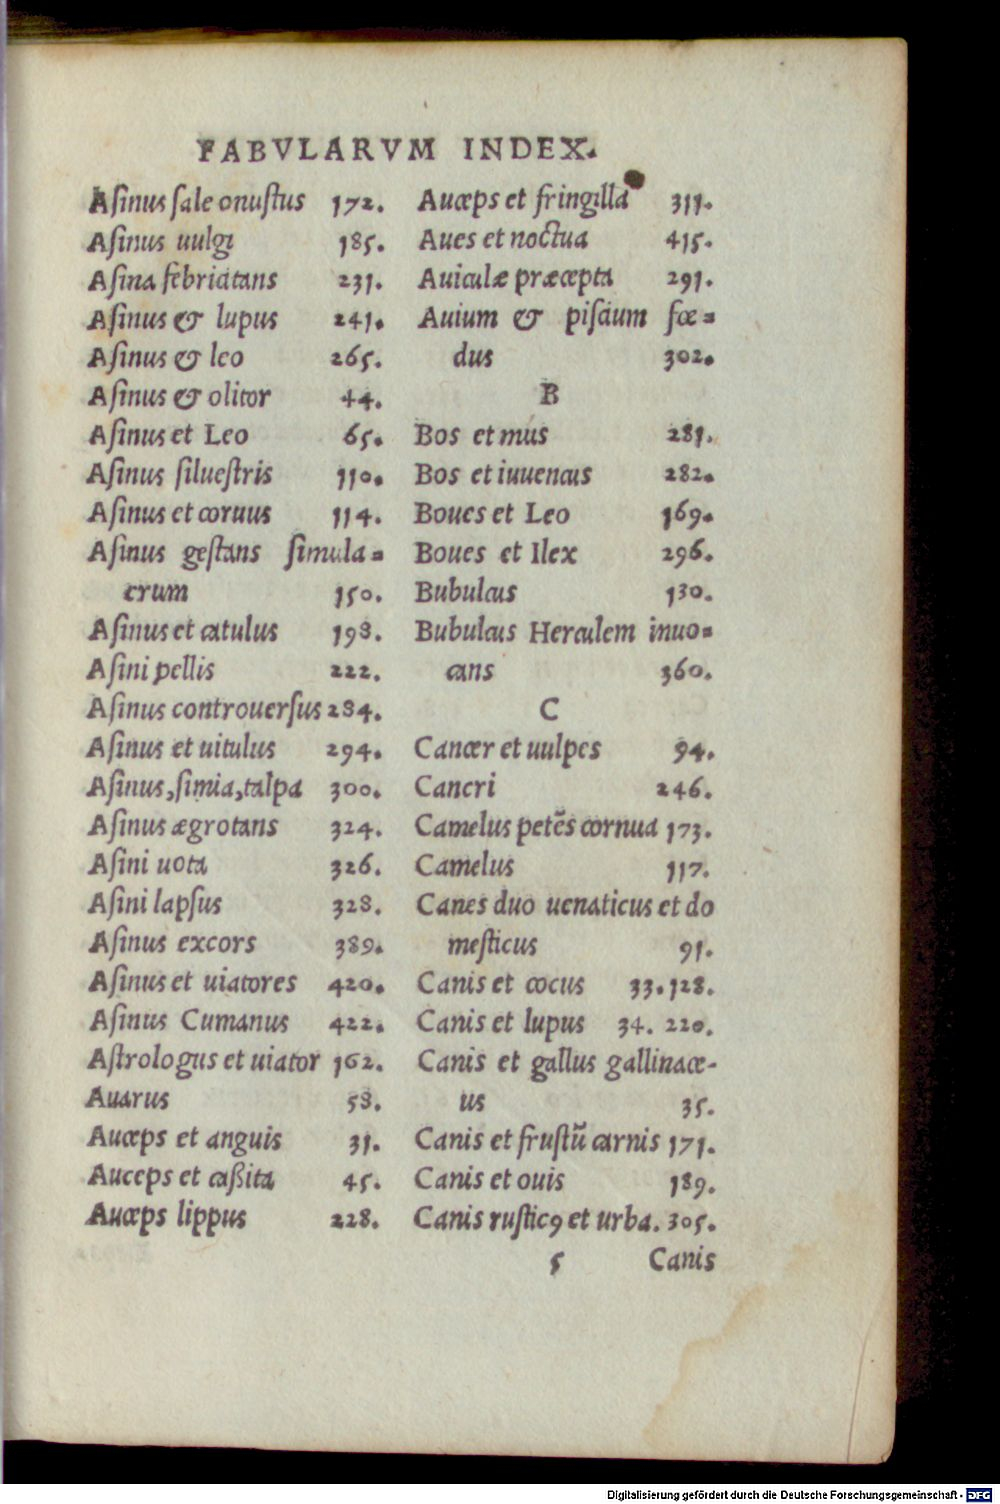 FABVLARVM INDEX.
Asinus sale onustus 172.
Asinus uulgi 185.
Asina febricitans 231.
Asinus & lupus 241.
Asinus & leo 265.
Asinus & olitor 44.
Asinus et Leo 65.
Asinus siluestris 110.
Asinus et coruus 114.
Asinus gestans simula=
crum 150.
Asinus et catulus 198.
Asini pellis 222.
Asinus controuersus 284.
Asinus et uitulus 294.
Asinus, simia, talpa 300.
Asinus ægrotans 324.
Asini uota 326.
Asini lapsus 328.
Asinus excors 389.
Asinus et uiatores 420.
Asinus Cumanus 422.
Astrologus et uiator 162.
Auarus 58.
Auceps et anguis 31.
Auceps et caßita 45.
Auceps lippus 228.
Auceps et fringilla 311.
Aues et noctua 415.
Auiculæ præcepta 291.
Auium & piscium fœ=
dus 302.
B
Bos et mus 281.
Bos et iuuencus 282.
Boues et Leo 169.
Boues et Ilex 296.
Bubulcus 130.
Bubulcus Herculem inuo=
cans 360.
C
Cancer et uulpes 94.
Cancri 246.
Camelus petēs cornua 173.
Camelus 117.
Canes duo uenaticus et do
mesticus 91.
Canis et cocus 33.128.
Canis et lupus 34. 220.
Canis et gallus gallinace-
us 35.
Canis et frustū carnis 171.
Canis et ouis 189.
Canis rusticꝯ et urba. 305.
s Canis
Digitalisierung gefördert durch die Deutsche Forschungsgemeinschaft - DFG